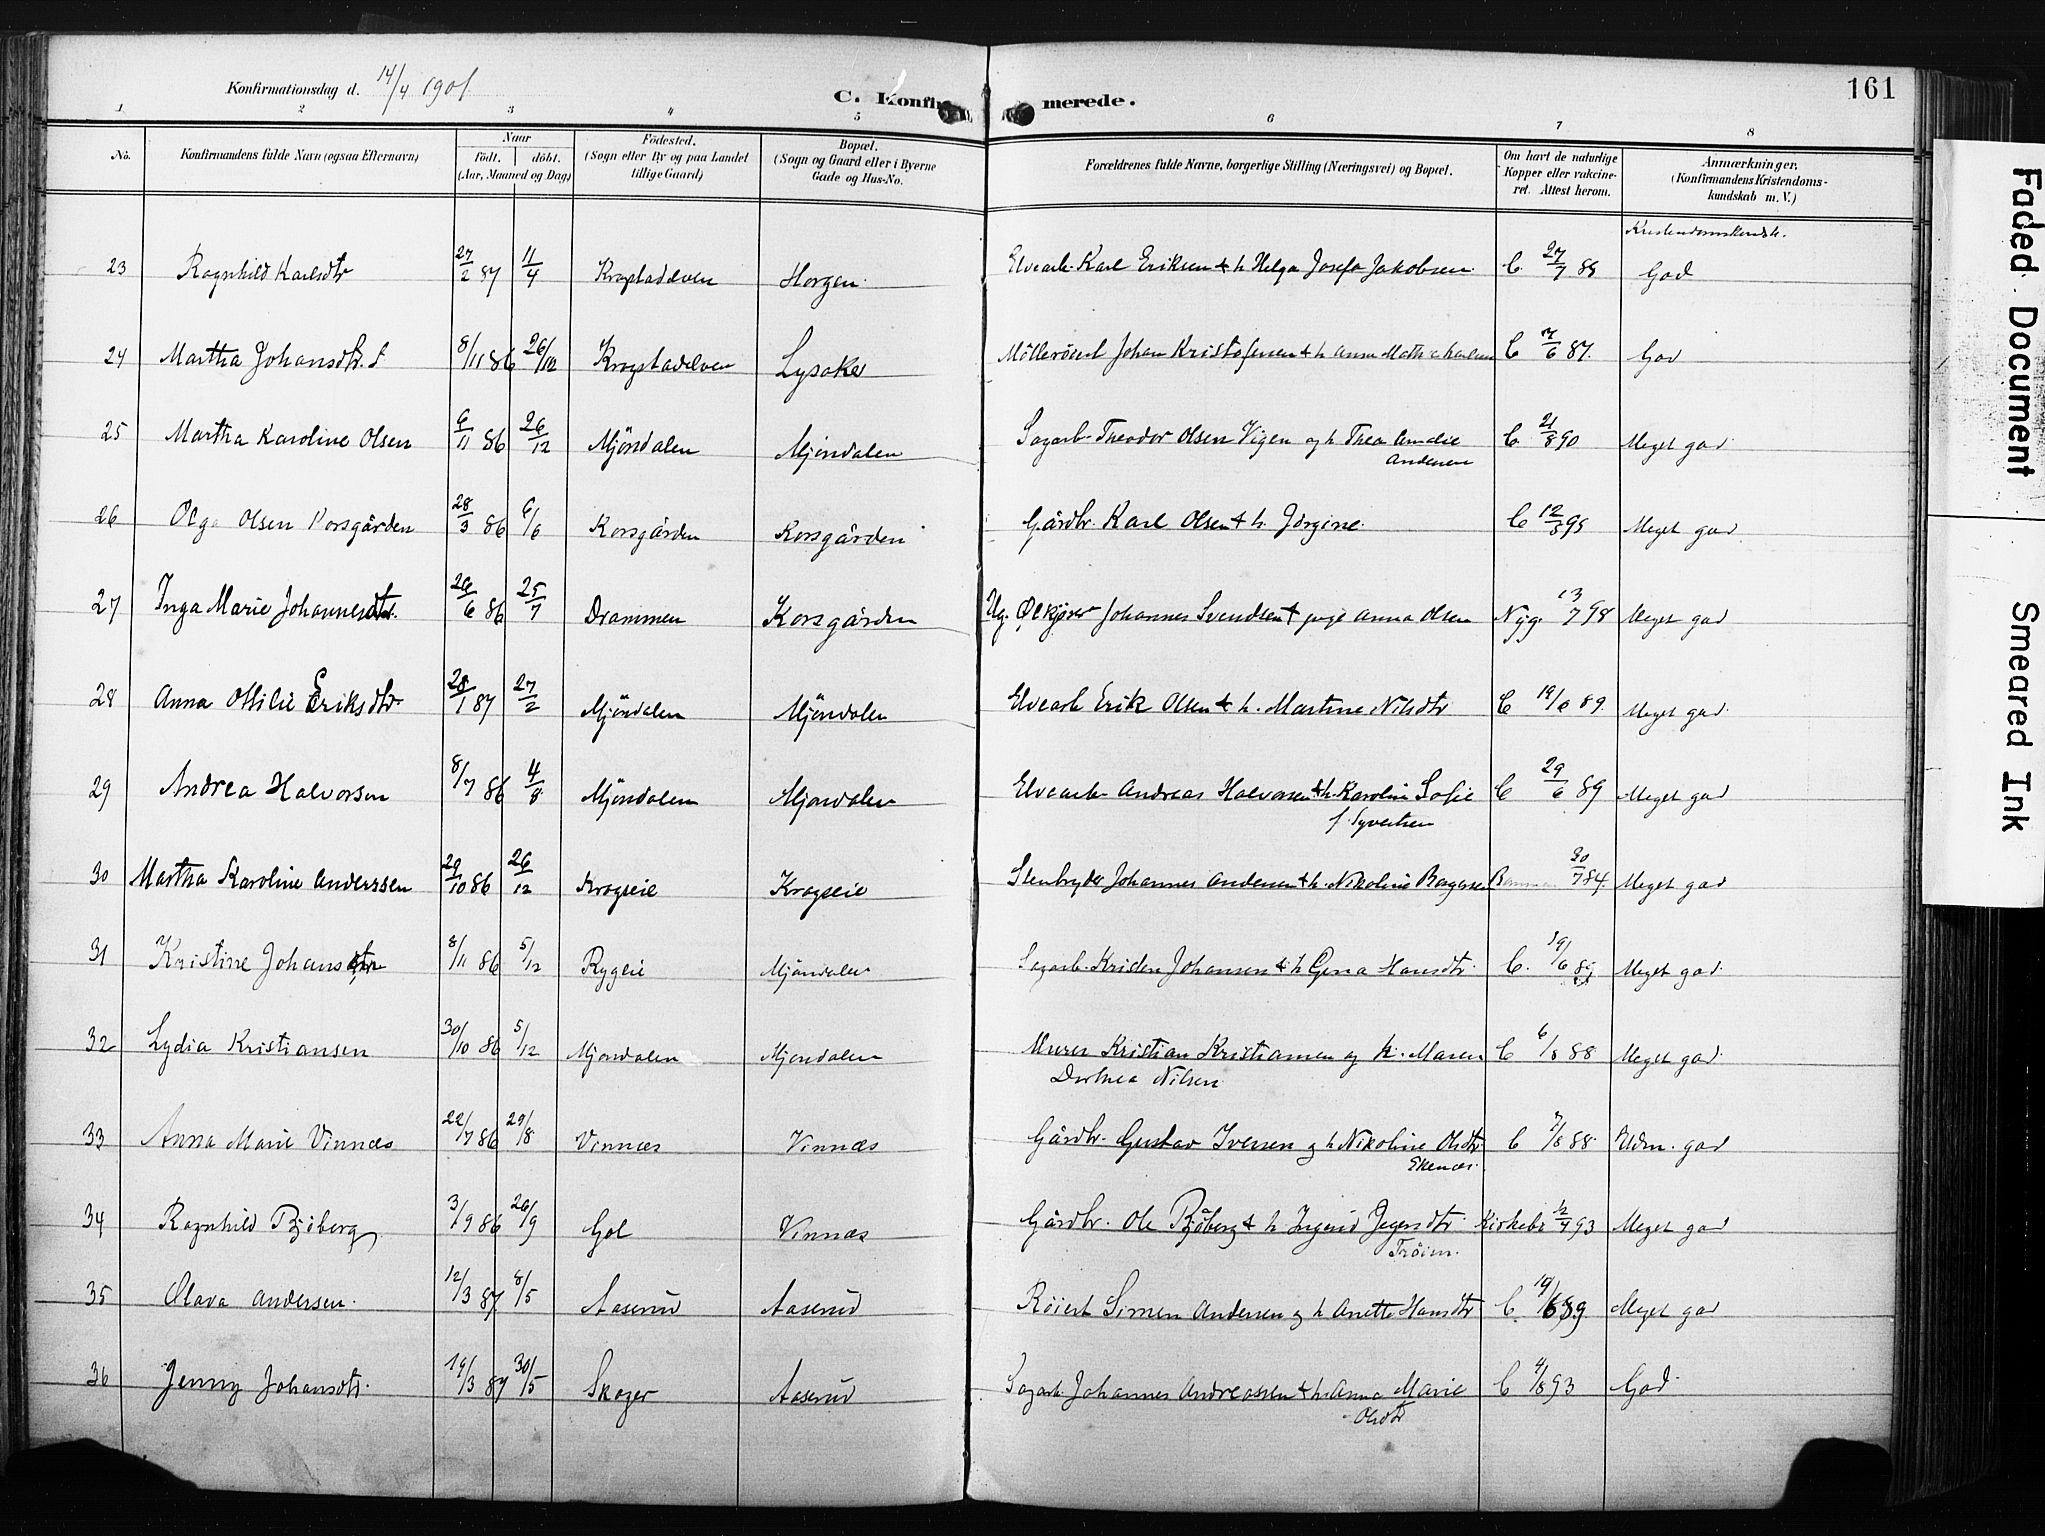 Konfirmationsdag d. 14/4 1901
C. Konfirmerede.
161
1 2 3 4 5 6 7 8
No.
Konfirmandens fulde Navn (ogsaa Efternavn)
Naar
födt. döbt.
(Aar, Maaned og Dag)
Födested.
(Sogn eller By og paa Landet
tillige Gaard)
Bopæl.
(Sogn og Gaard eller i Byerne
Gade og Hus-No.
Forældrenes fulde Navne, borgerlige Stilling (Næringsvei) og Bopæl.
Om havt de naturlige
Kopper eller vakcine-
ret. Attest herom.
Anmærkninger,
(Konfirmandens Kristendoms-
kundskab m. V.)
23 Ragnhild Karlsdtr 27/2 87 11/4 Krogstadelven Horgen Elvearb. Karl Eriksen & h. Helga Josefa Jakobsen C. 27/7 88 God
24 Martha Johansdtr. 8/11 86 26/12 Krogstadelven Lysaker Johan Kristofersen & h. Anna C 87. God
25 Martha Karoline Olsen 6/11 86 26/12 Mjöndalen Mjöndalen Sagarb. Theodor Olsen Vigen og h. Thea Amalie C. 21/8 90 Meget god
Andersen
26 Olga Olsen Korsgården 28/3 86 6/6 Korsgården Korsgården Gårdbr. Karl Olsen & h. Jörgine. C 12/8 95 Meget god
27 Inga Marie Johannesdtr. 26/6 86 25/7 Drammen Korsgården Ug. Ølkjører Johannes Svendsen & pige Anna Olsen Nyg. 13/7 98 Meget god
28 Anna Ottilie Eriksdtr 28/1 87 27/2 Mjöndalen Mjöndalen Elvearb Erik Olsen & h. Martine Nilsdtr C 19/6 89. Meget god
29 Andrea Halvorsen 8/7 86 4/8 Mjöndalen Mjöndalen Elvearb. Andreas Halvorsen & h. Karoline Sofie C 29/6 89 Meget god
f. Syvertsen
30 Martha Karoline Anderssen 29/10 86 26/12 Krogseie Krogseie Stenbryder Johannes Andersen & h. Nikoline Borgersen 30/7 84. Meget god
31 Kristine Johansdtr 8/11 86 5/12 Rygeie Mjöndalen Sagarb. Johansen & h Gina Hansdtr. C. 19/6 89 Meget god.
32 Lydia Kristiansen 30/10 86 5/12 Mjöndalen Mjöndalen Murer Kristian Kristiansen og h. Maren C 6/8 88 Meget god.
Dorthea Nilsen
33 Anna Marie Vinnæs 22/7 86 29/8 Vinnæs Vinnæs Gårdbr. Gustav Iversen og h Nikoline Olsdtr C 7/8 88 Udm. god
Ekenæs.
34 Ragnhild Bjöberg 3/9 86 26/9 Gol Vinnæs Gårdbr. Ole Bjöberg & h Ingerid 93 Meget god
Tröim.
35 Olava Andersen. 12/3 87 8/5 Aaserud Aaserud Röiert Simen Andersen og h Anette Hansdtr C. 19/6 89 Meget god
36 Jenny Johansdtr. 19/3 87 30/5 Skoger Aaserud Sagarb. Johannes Andreassen & h. Anna Marie C 4/8 93 God
Olsdtr
Faded Document
Smeared Ink